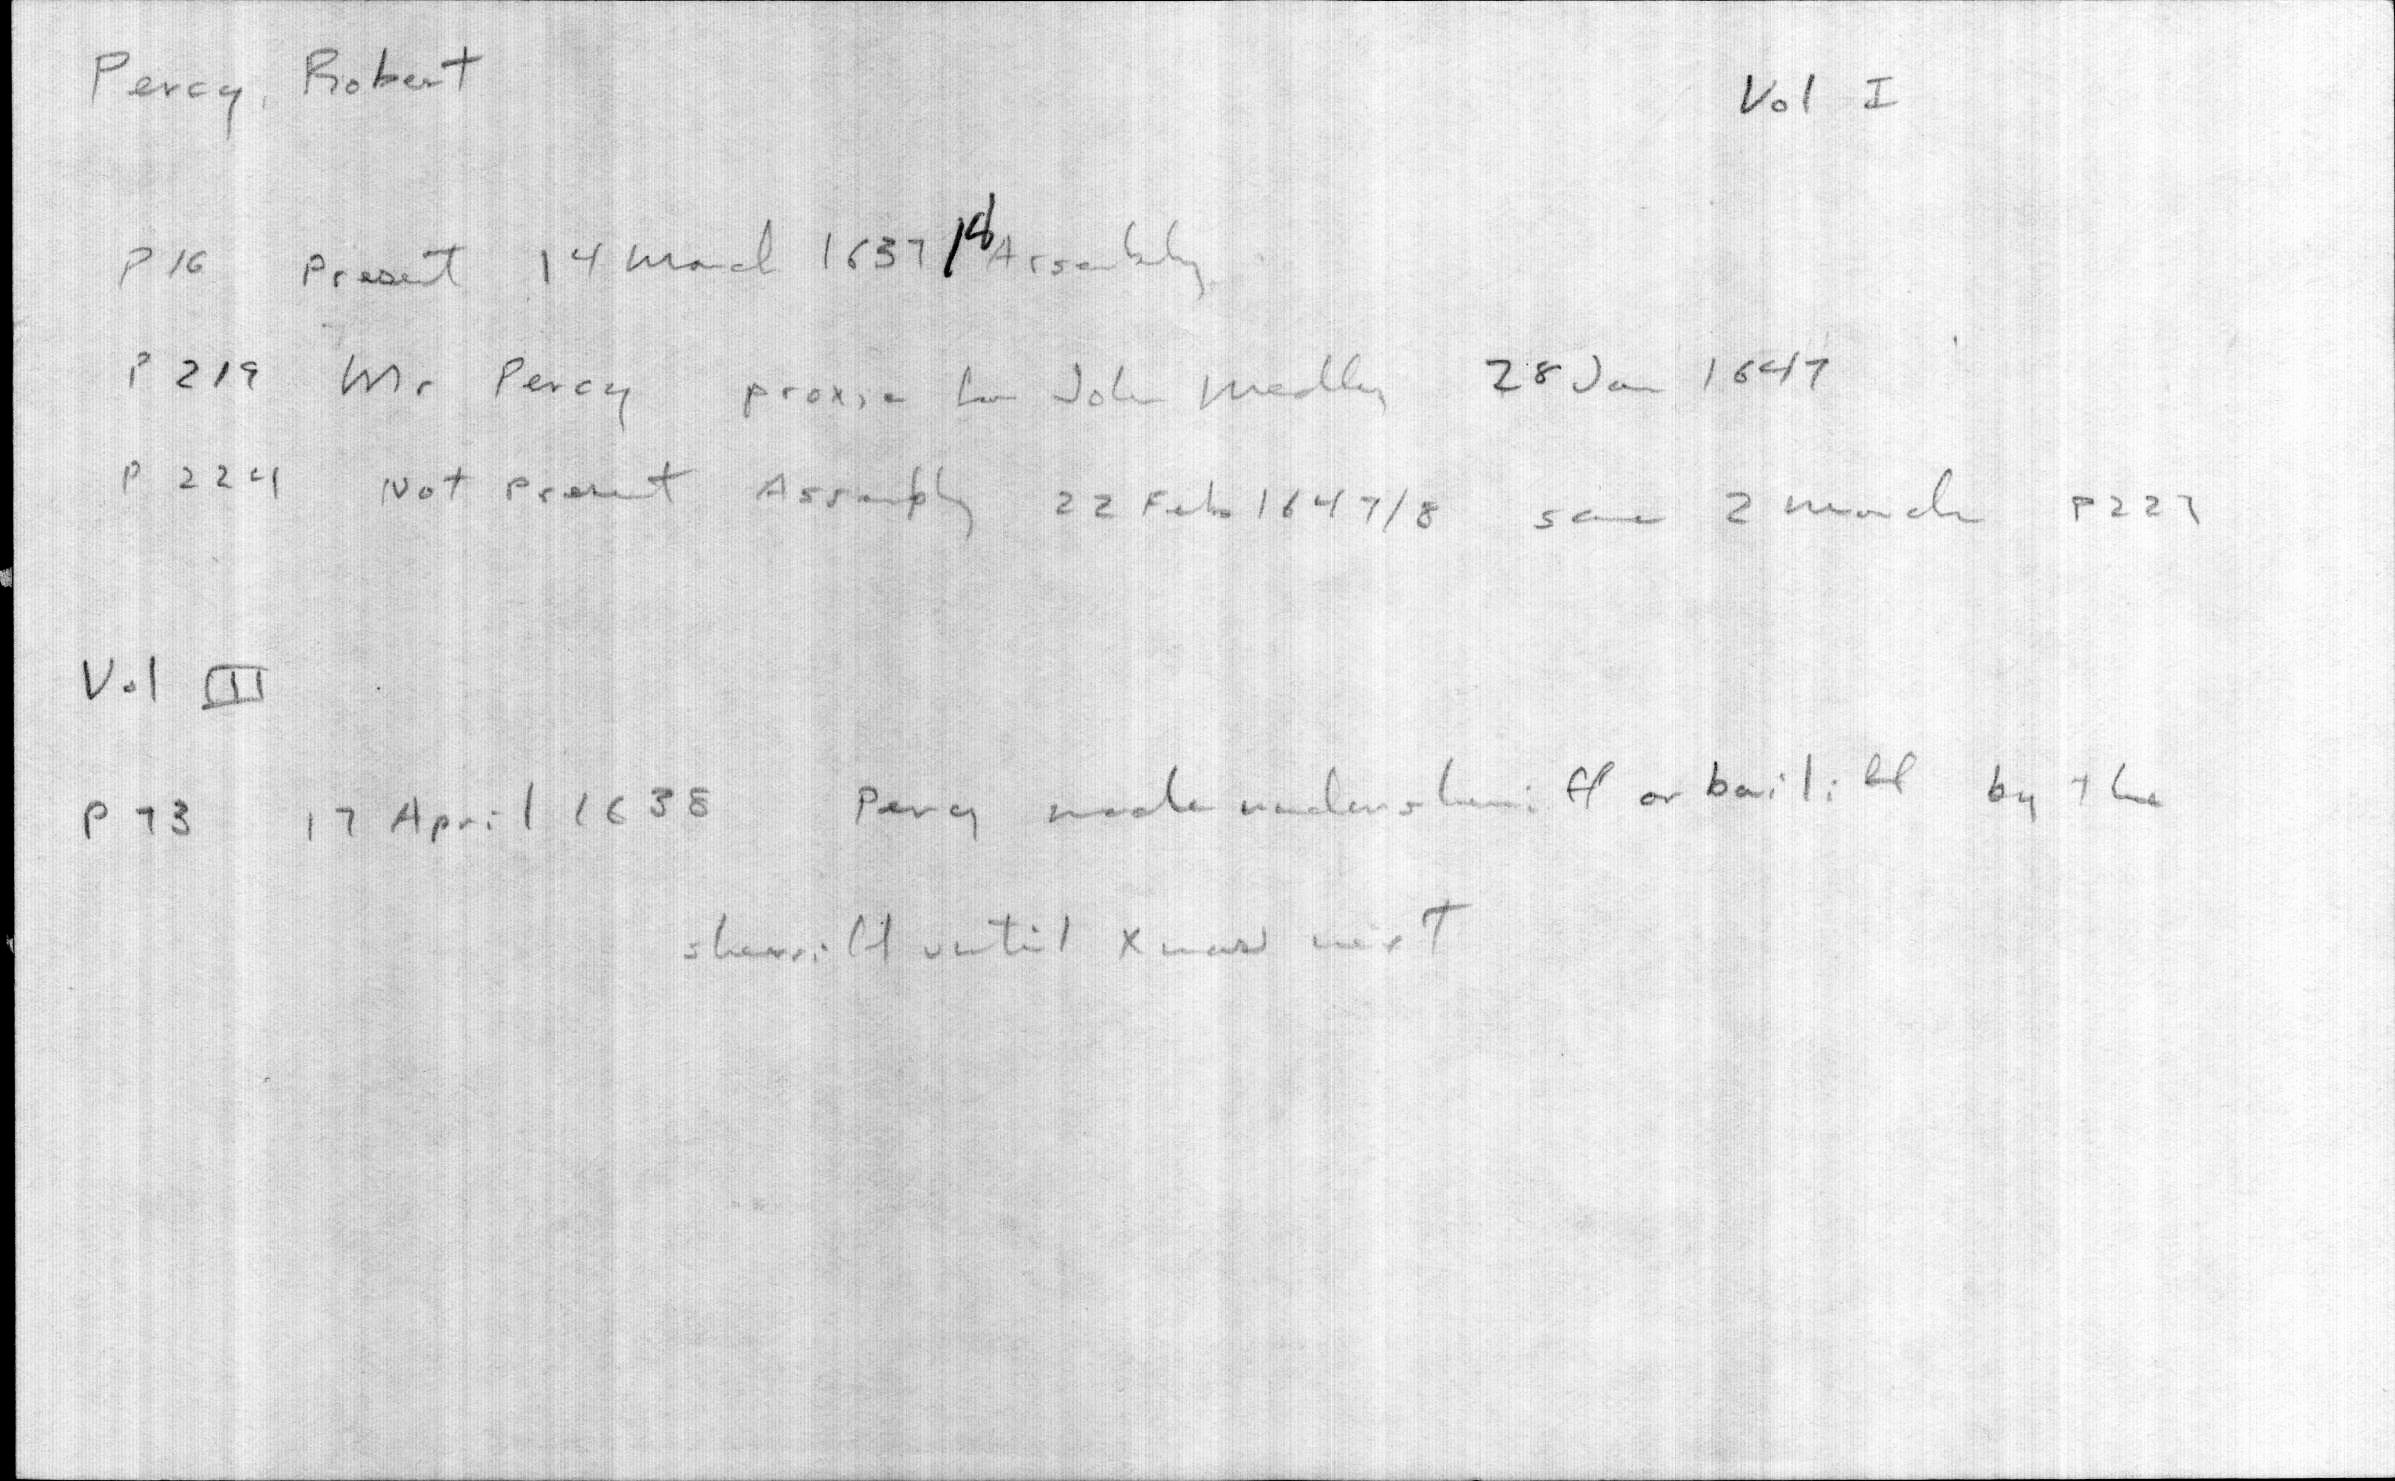 Percy, Robert Vol I
P 16 Present 14 March 1637/8 Assembly
P 219 Mr Percy proxie for John Medley 28 Jan 1647
P 224 Not Present Assembly 22 Feb 1647/8 same 2 March P227
Vol III
P 73 17 April 1638 Percy made undersheriff or bailiff by the
sherriff until Xmas next